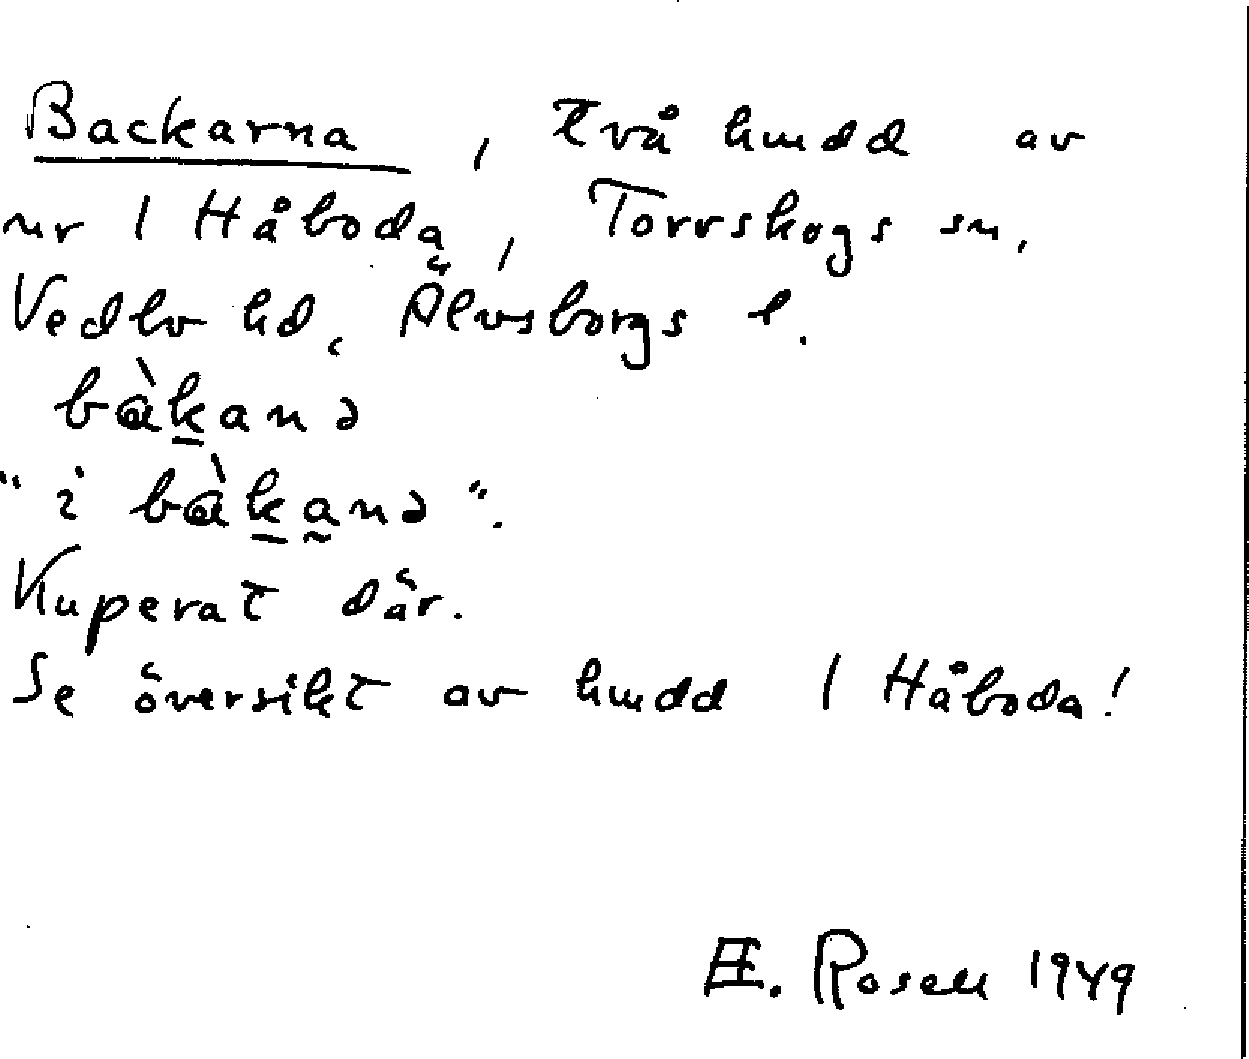 Backarna, två hmdd av
nr 1 Håboda, Torrskogs sn,
Vedbo hd, Älvsborgs l.
bàkanə
"i bàkanə".
Kuperat där.
Se översikt av hmdd 1 Håboda!
E. Rosell 1949